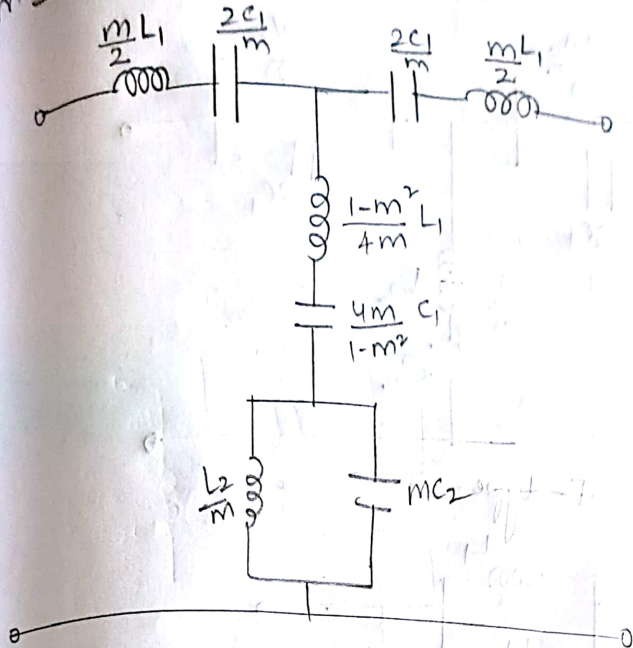 m/2 L₁
2C₁/m
2C₁/m
m/2 L₁
1-m²/4m L₁
4m/1-m² C₁
L₂/m
mC₂